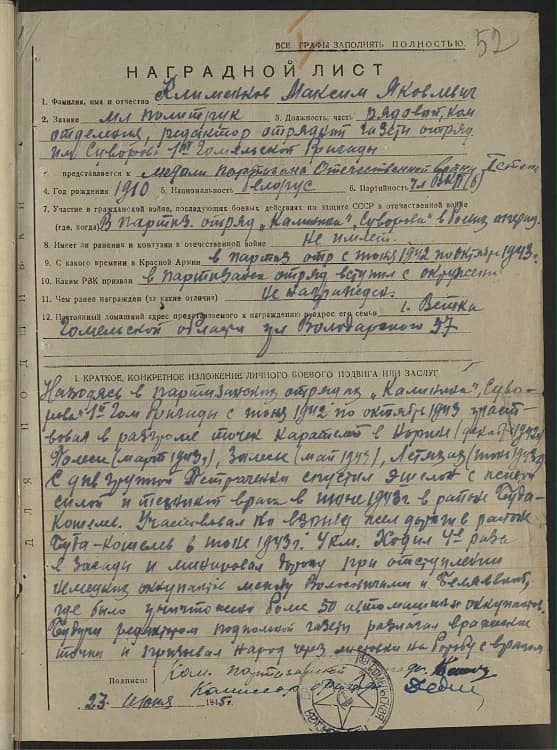 ВСЕ ГРАФЫ ЗАПОЛНЯТЬ ПОЛНОСТЬЮ.
52
НАГРАДНОЙ ЛИСТ
1. Фамилия, имя и отчество Клименков Максим Яковлевич
2. Звание мл политрук 3. Должность, часть рядовой, ком
отделения, редактор отрядной газеты отряд
им Суворова 1ой Гомельской бригады
представляется к медали партизана Отечественной войны I степ
4. Год рождения 1910 5. Национальность белорус 6. Партийность чл ВКП(б)
7. Участие в гражданской войне, последующих боевых действиях по защите СССР и отечественной войне
(где, когда) В партиз. отряд „Калинина", „Суворова" в боевых операц.
8. Имеет ли ранения и контузии в отечественной войне не имеет.
9. С какого времени в Красной Армии в партиз отр с июня 1942 по октябрь 1943 г.
10. Каким РВК призван в партизанск отряд вступил с окружения
11. Чем ранее награжден (за какие отличия) не награжден.
12. Постоянный домашний адрес представляемого к награждению и адрес его семьи г. Ветка
Гомельской области ул Володарского 57
ДЛЯ ПОДШИВКИ
I. КРАТКОЕ, КОНКРЕТНОЕ ИЗЛОЖЕНИЕ ЛИЧНОГО БОЕВОГО ПОДВИГА ИЛИ ЗАСЛУГ
Находясь в партизанских отрядах „Калинина", „Суво-
рова" 1ой Гом бригады с июня 1942 по октябрь 1943 участ-
вовал в разгроме точек карателей в (декабрь 1942г)
(март 1943г), Залесье (май 1943), (июнь 1943г)
С див группой Петраченки спустил эшелон с живой
силой и техникой врага в июне 1943г в районе Буда-
Кошелев. Участвовал во взрыве жел дороги в районе
Буда-Кошелев в июне 1943г. 4 км. Ходил 4 раза
в засады и минировал дорогу при отступлении
немецких оккупантов между и Беляевкой,
где было уничтожено более 50 автомашин оккупантов.
Будучи редактором подпольной газеты разлагал вражеские
точки и призывал народ через листовки на борьбу с врагом
Ком. партизанской
Подпись: Комиссар
23 июня 1945г.